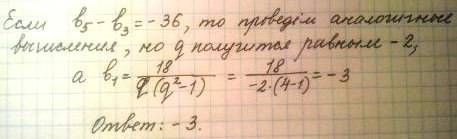 Если b₅ - b₃ = -36, то проведём аналогичные
вычисления, но q получится равным -2,
а b₁ = 18/(q(q²-1)) = 18/(-2·(4-1)) = -3
Ответ: -3.